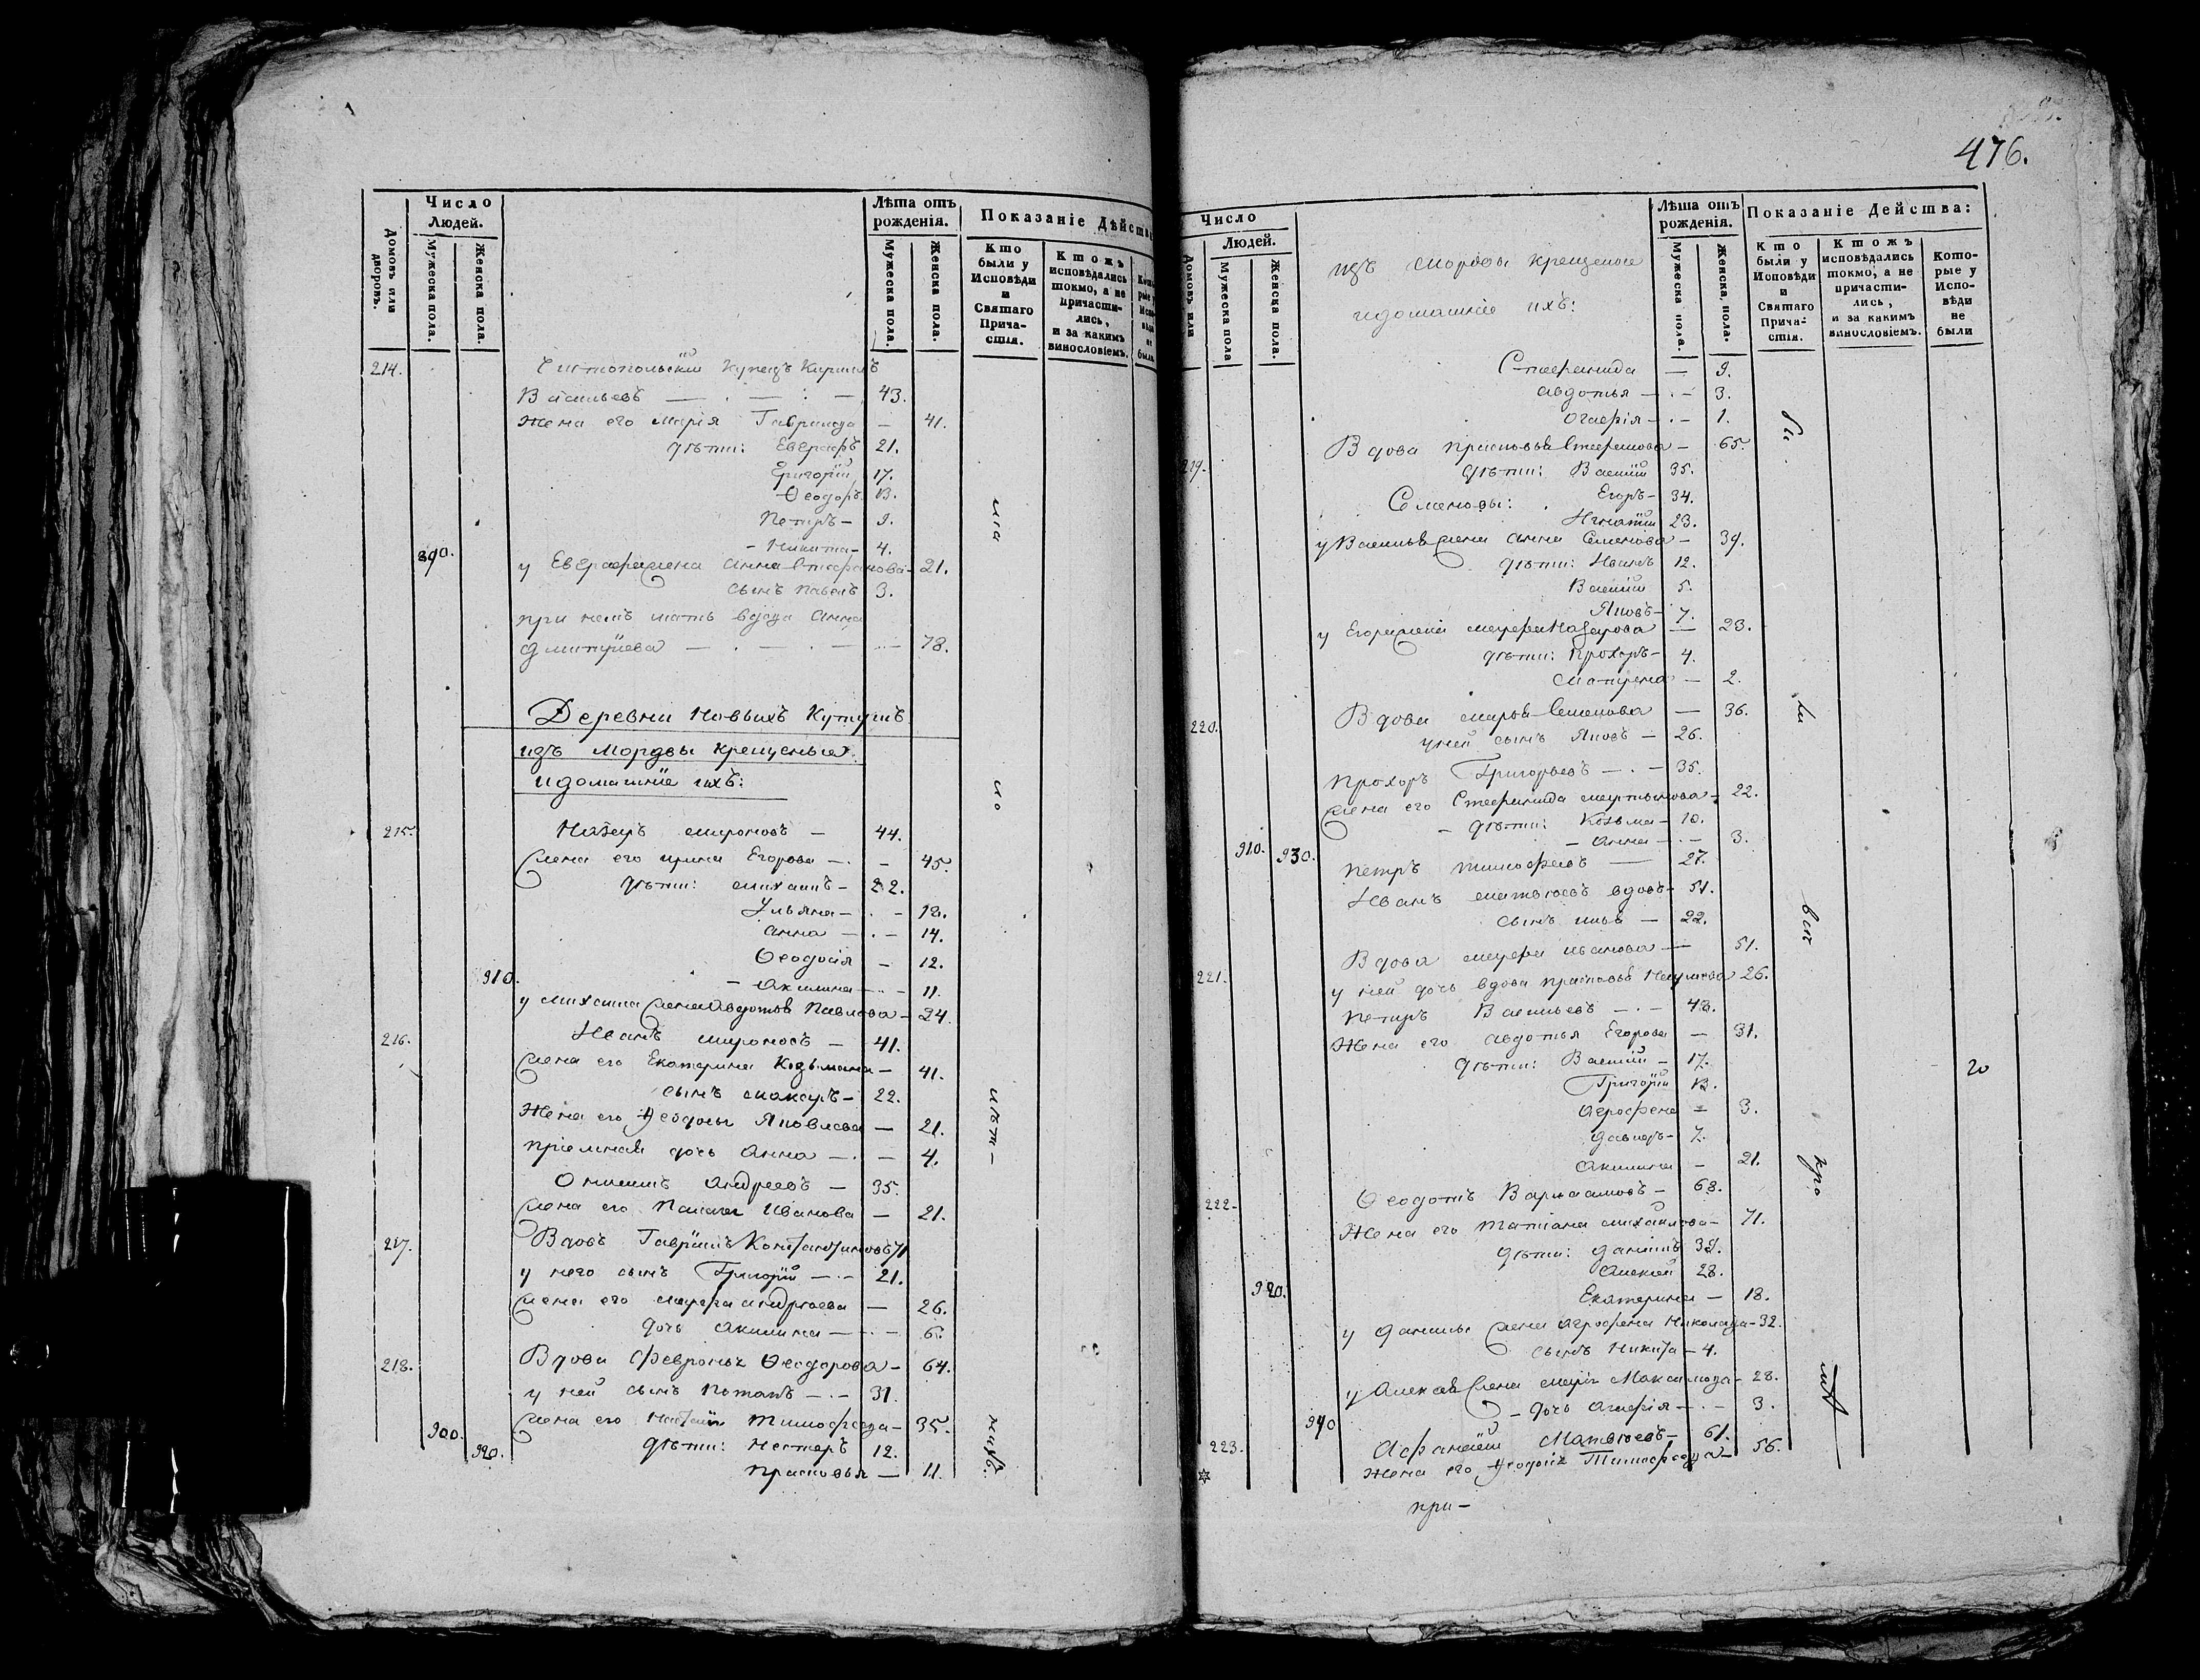 Число Людей.
Лѣта отъ рожденія.
Показаніе Дѣйства
Домовъ или дворовъ.
Мужеска пола.
Женска пола.
Мужеска пола.
Женска пола.
Кто были у Исповѣди и Святаго Причастія.
Ктожъ исповѣдались токмо, а не причастились, и за какимъ винословіемъ.
214. Чистопольскій Купецъ Кириллъ
Васильевъ — 43.
Жена его Марія Гаврилова — 41.
дѣти: Евграфъ 21.
Григорій 17.
Ѳеодоръ 13.
Петръ — 9.
890. Никита — 4.
у Евграфа жена Анна Стефанова — 21.
сынъ Павелъ 3.
при немъ мать вдова Анна
Дмитріева — 78.
Деревни Новыхъ Кутушъ
изъ Мордвы крещеныя
и домашніе ихъ:
215. Назаръ Мироновъ — 44.
Жена его Ирина Егорова — 45.
дѣти: Михаилъ — 22.
Ульяна — 18.
Анна — 14.
Ѳеодосія — 12.
910. Акилина — 11.
у Михаила жена Авдотья Павлова — 24.
216. Иванъ Мироновъ — 41.
Жена его Екатерина Козьмина — 41.
сынъ Макаръ — 22.
Жена его Ѳеодосья Яковлева — 21.
Пріемная дочь Анна — 4.
Онисимъ Андреевъ — 35.
Жена его Палагея Иванова — 21.
217. Вдовъ Гаврiилъ Константиновъ 71
у него сынъ Григорій — 21.
Жена его Марфа Андреева — 26.
дочь Акилина — 6.
218. Вдова Февронья Ѳеодорова — 64.
у ней сынъ Потапъ — 31.
900. Жена его Наталiя Тимофеева — 35.
920. дѣти: Нестеръ 12.
Прасковья — 11.
476.
Число Людей.
Лѣта отъ рожденія.
Показаніе Действа:
Домовъ или
Мужеска пола
Женска пола.
изъ Мордвы крещеные
и домашніе ихъ:
Мужеска пола.
Женска, пола.
Кто были у Исповѣди и Святаго Причастія.
Ктожъ исповѣдались токмо, а не причастились, и за какимъ винословіемъ.
Которые у Исповѣди не были
Стефанида — 9.
Авдотья — 3.
Агафія — 1.
219. Вдова Прасковья Стефанова — 65.
дѣти: Василій 35.
Семеновы: Егоръ — 34.
Игнатій 23.
у Василья жена Анна Семенова — 39.
дѣти: Иванъ 12.
Василій 5.
Яковъ — 7.
у Егора жена Марфа Назарова — 23.
дѣти: Прохоръ — 4.
Матрена — 2.
220. Вдова Марья Семенова — 36.
у ней сынъ Яковъ — 26.
Прохоръ Григорьевъ — 35.
Жена его Стефанида Мартынова — 22.
дѣти: Козьма — 10.
910. 930. Анна — 3.
Петръ Тимофеевъ — 27.
Иванъ Матвѣевъ вдовъ — 51.
сынъ Илья — 22.
Вдова Марфа Иванова — 51.
221. у ней дочь вдова Прасковья Наумова 26.
Петръ Васильевъ — 48.
Жена его Авдотья Егорова — 31.
дѣти: Василій — 17.
Григорій 13.
Агрофена — 3.
Давыдъ — 7.
Акилина — 21.
222. Ѳеодотъ Варлаамовъ — 68.
Жена его Татіана Михайлова — 71.
дѣти: Даніилъ 38.
Алексей 28.
920. Екатерина — 18.
у Данилы жена Агрофена Николаева — 32.
сынъ Никита — 4.
у Алексея жена Марія Максимова — 28.
940 дочь Агафія — 3.
223. Афанасій Матвѣевъ — 61.
Жена его Ѳеодосья Тимофеева — 56.
при —